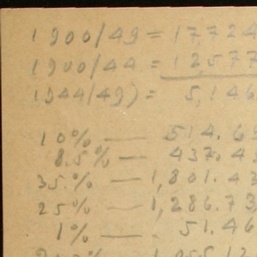 1900/49 = 17,724
1900/44 = 12,577
1944/49) = 5,146
10% — 514.63
8.5% — 437.43
35.% — 1,801.43
25% — 1,286.73
1% — 51.46